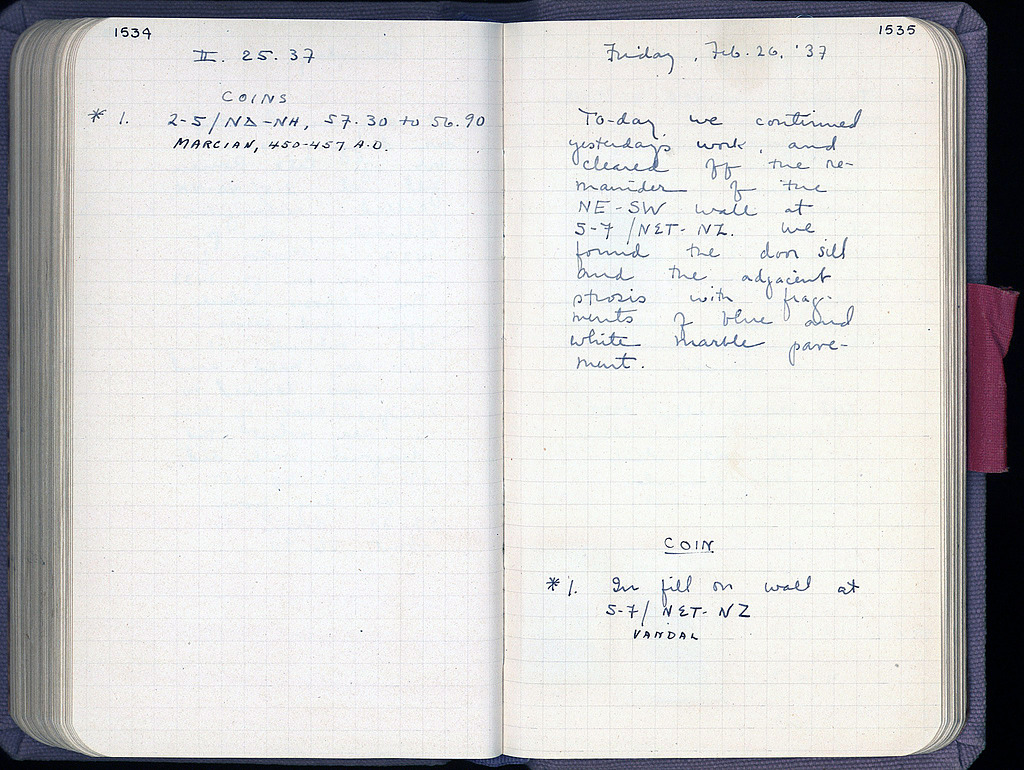 1534
II. 25. 37
COINS
* 1. 2-5/ΝΔ-ΝΗ, 57.30 to 56.90
MARCIAN, 450-457 A.D.
1535
Friday, Feb. 26, '37
To-day we continued
yesterday's work, and
cleared off the re-
mainder of the
NE-SW wall at
5-7/ΝΣΤ-ΝΖ. We
found the door sill
and the adjacent
strosis with frag-
ments of blue and
white marble pave-
ment.
COIN
* 1. In fill on wall at
5-7/ΝΣΤ-ΝΖ
VANDAL